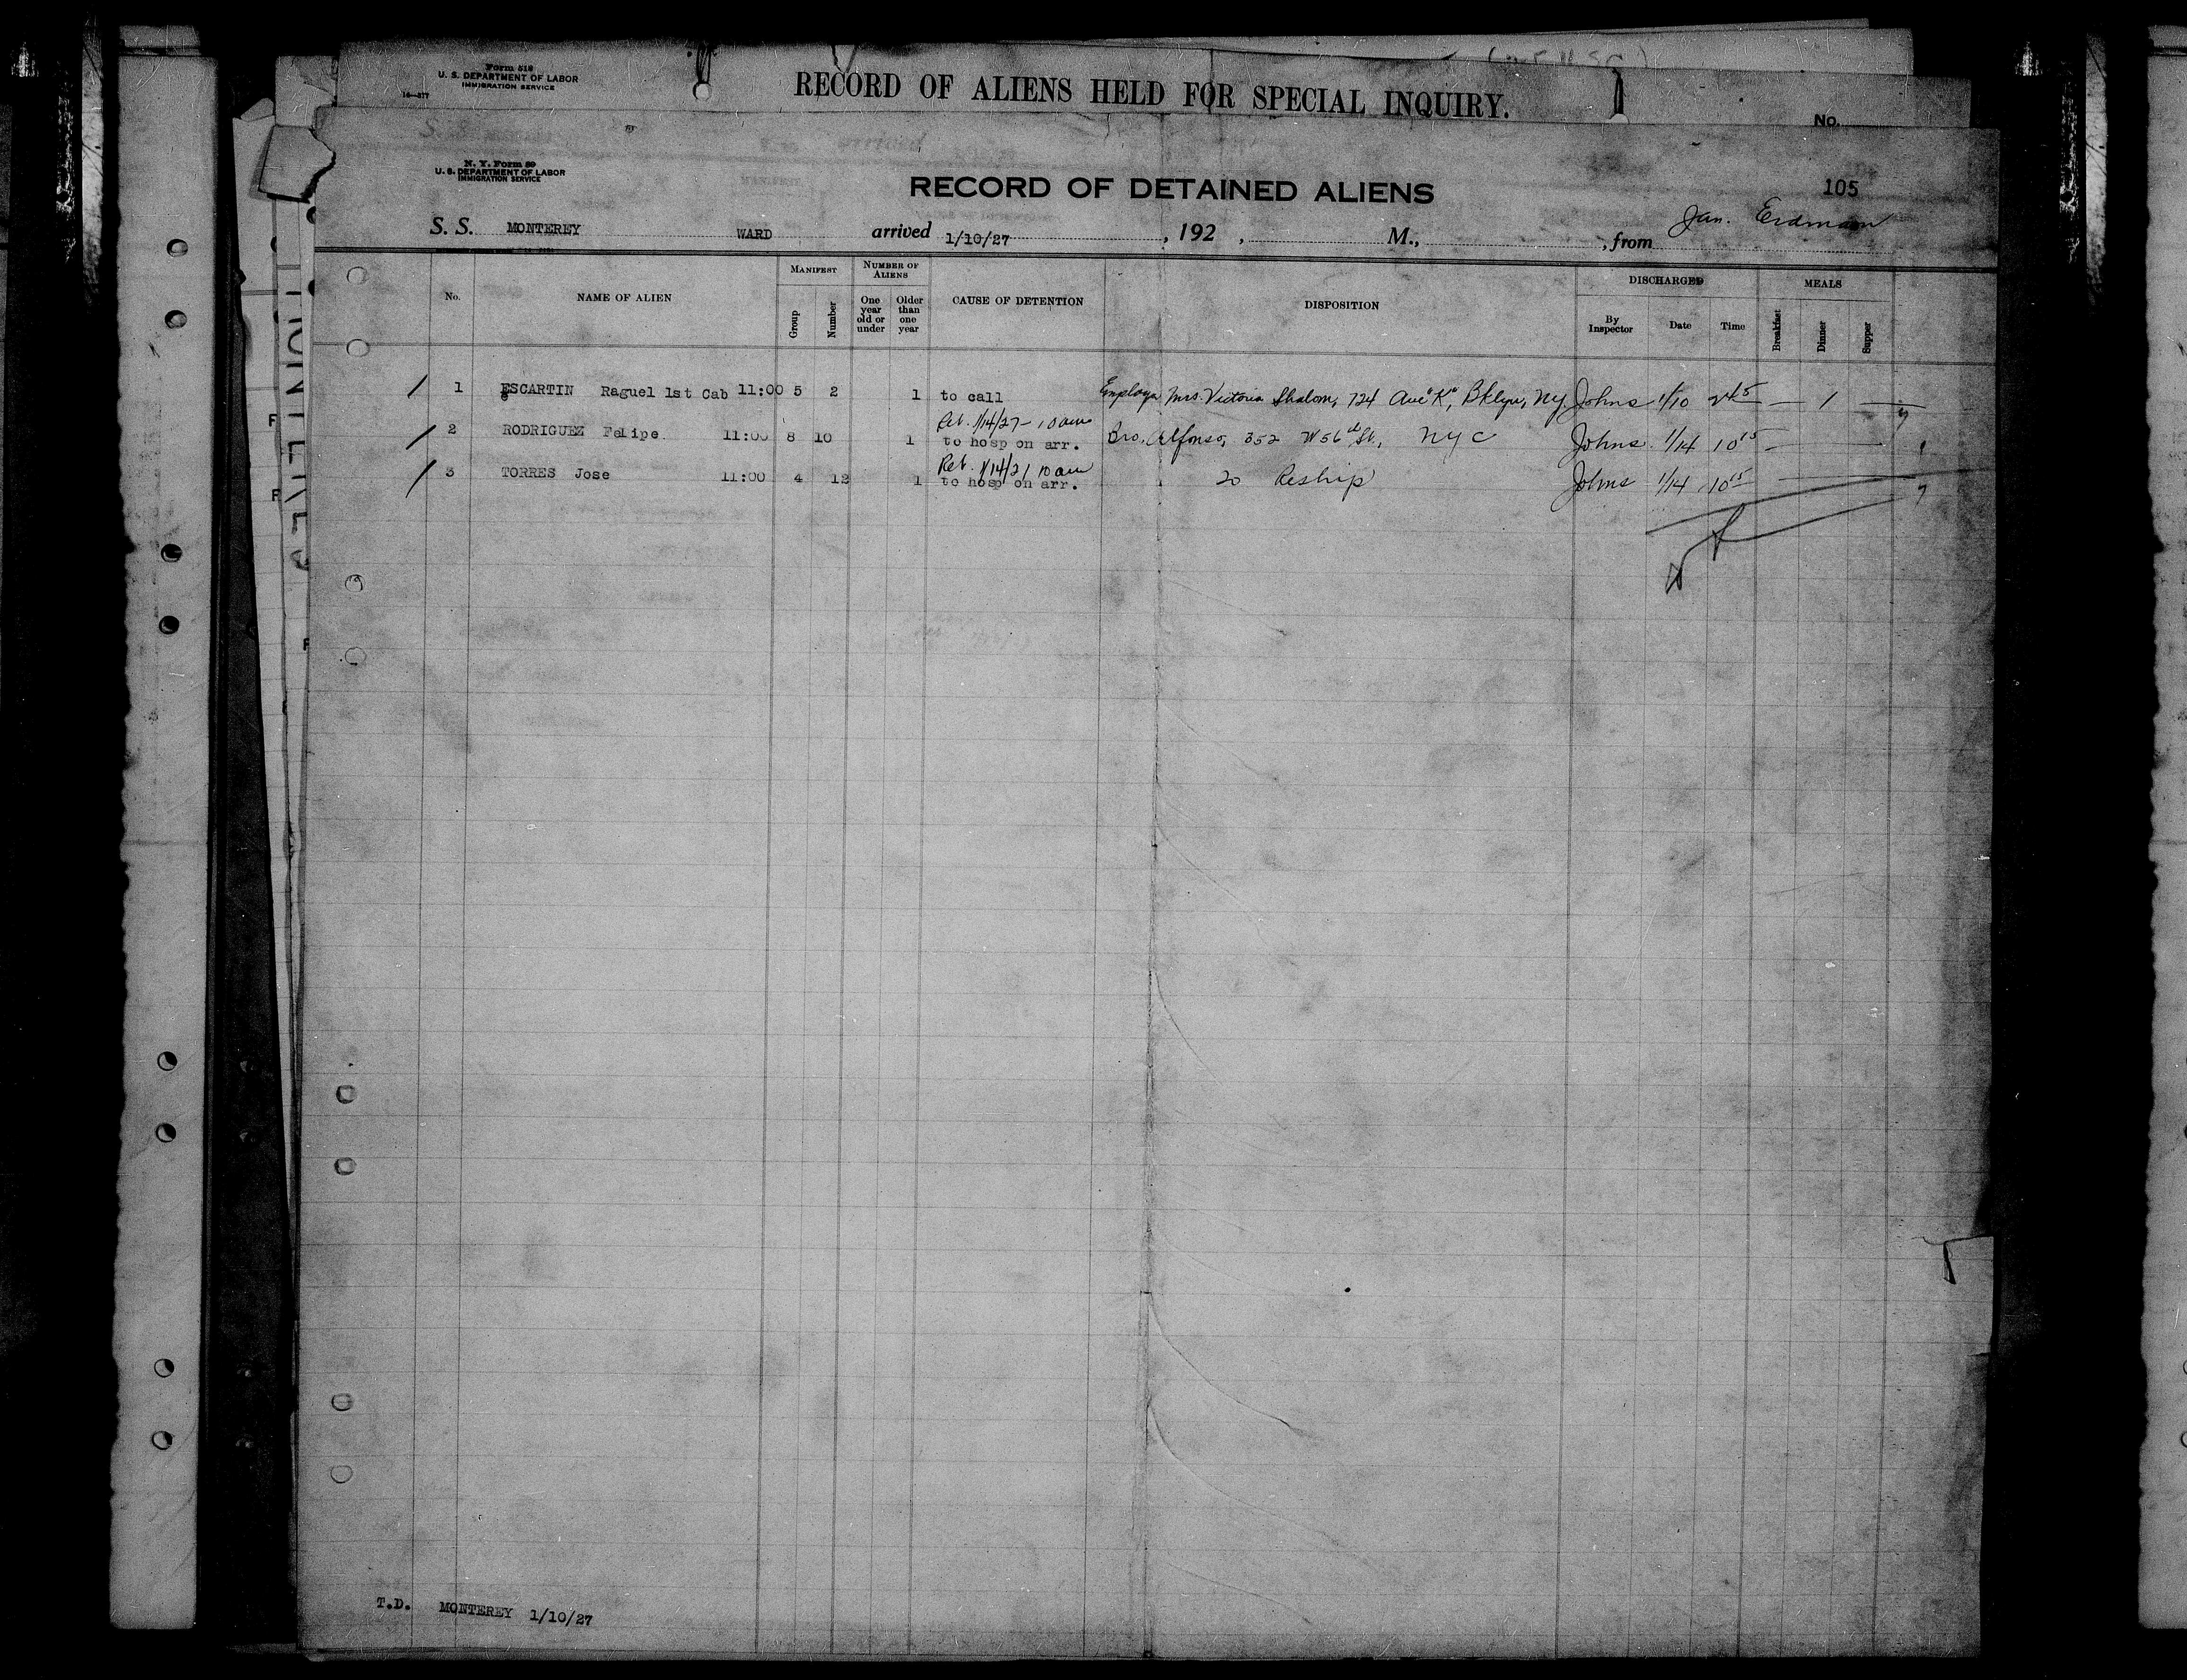 Form 518
U. S. DEPARTMENT OF LABOR
IMMIGRATION SERVICE
16—277
RECORD OF ALIENS HELD FOR SPECIAL INQUIRY.
No.
N. Y. Form 50
U. S. DEPARTMENT OF LABOR
IMMIGRATION SERVICE
RECORD OF DETAINED ALIENS
105
Jan. Erdman
S. S. MONTEREY WARD arrived 1/10/27, 192 , M., , from
No. NAME OF ALIEN MANIFEST Group Number NUMBER OF ALIENS One year old or under Older than one year CAUSE OF DETENTION DISPOSITION DISCHARGED By Inspector Date Time MEALS Breakfast Dinner Supper
/ 1 ESCARTIN Raguel 1st Cab 11:00 5 2 1 to call Mrs. Victoria Shalom, 724 Ave "K", Bklyn, NY. Johns 1/10 2 45 — 1 —
1/14/27 - 10 am
/ 2 RODRIGUEZ Felipe 11:00 8 10 1 to hosp on arr. Bro. Alfonso, 352 W 56th St., NYC Johns 1/14 10 15 —
10 am
/ 3 TORRES Jose 11:00 4 12 1 to hosp on arr. Reship Johns 1/14 10 15 —
T.D. MONTEREY 1/10/27